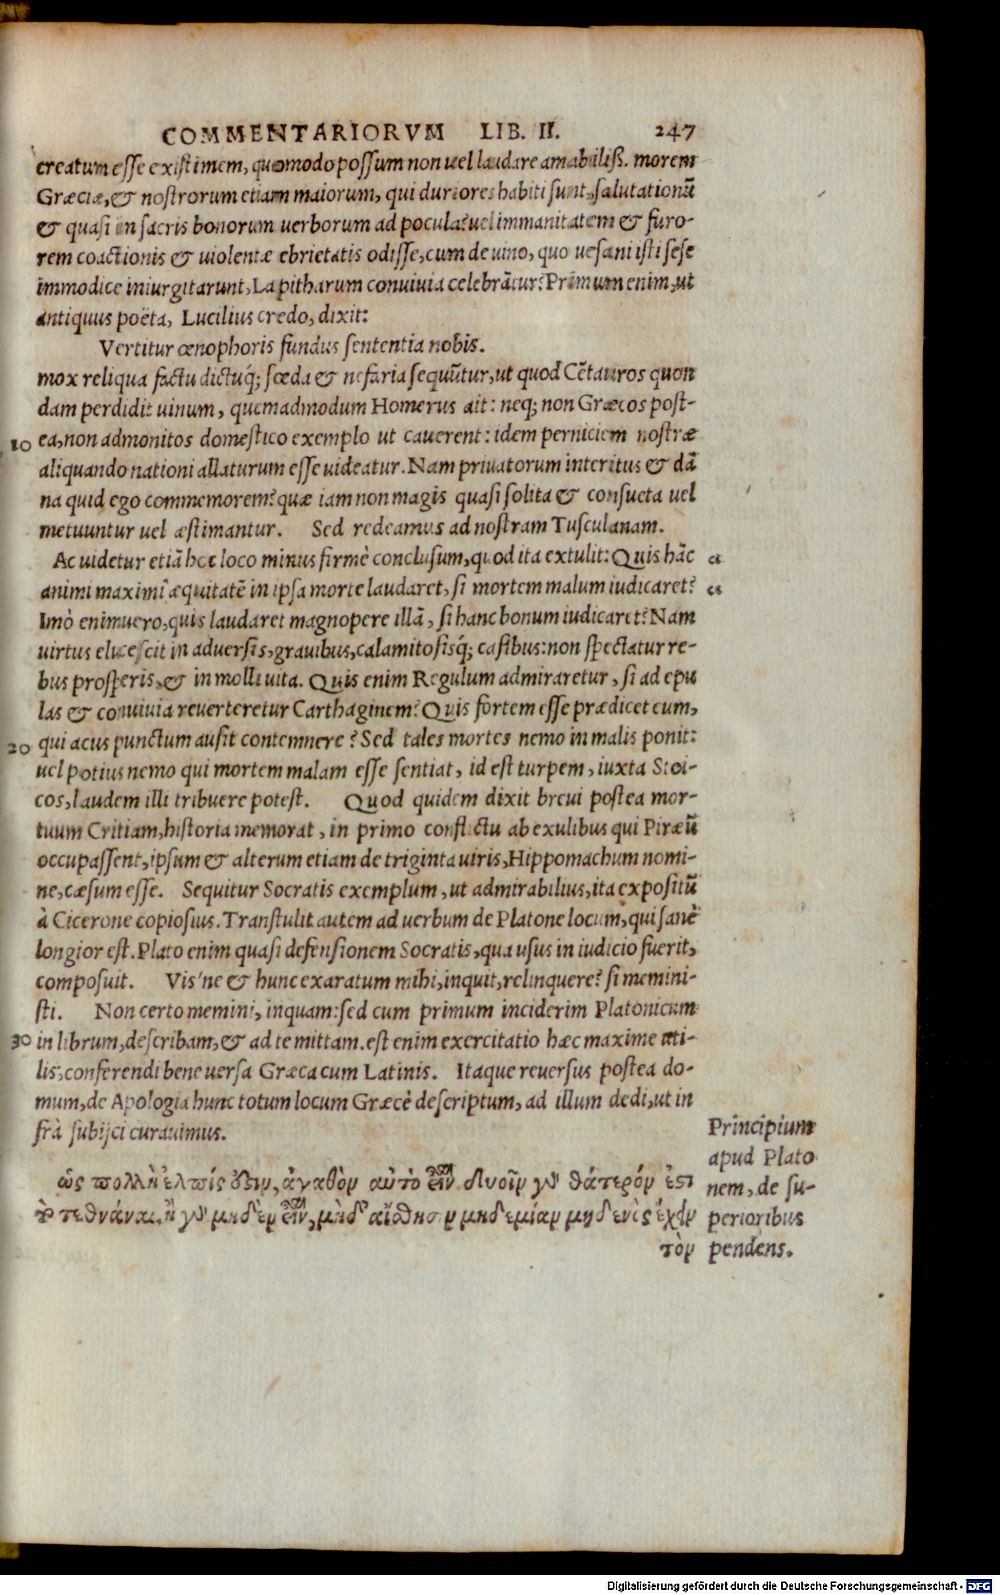 COMMENTARIORVM LIB. II. 247
creatum esse existimem, quomodo possum non uel laudare amabiliss. morem
Græciæ, & nostrorum etiam maiorum, qui duriores habiti sunt, salutationũ
& quasi in sacris bonorum uerborum ad pocula? uel immanitatem & furo-
rem coactionis & uiolentæ ebrietatis odisse, cum de uino, quo uesani isti sese
immodice iniurgitarunt, Lapitharum conuiuia celebrãtur? Primum enim, ut
antiquus poëta, Lucilius credo, dixit:
Vertitur œnophoris fundus sententia nobis.
mox reliqua factu dictuq́; fœda & nefaria sequũtur, ut quod Cẽtauros quon
dam perdidit uinum, quemadmodum Homerus ait: neq; non Græcos post-
10 ea, non admonitos domestico exemplo ut cauerent: idem perniciem nostræ
aliquando nationi allaturum esse uideatur. Nam priuatorum interitus & dã
na quid ego commemorem? quæ iam non magis quasi solita & consueta uel
metuuntur uel æstimantur. Sed redeamus ad nostram Tusculanam.
Ac uidetur etiã hoc loco minus firmè conclusum, quod ita extulit: Quis hãc “
animi maximi æquitatẽ in ipsa morte laudaret, si mortem malum iudicaret? “
Imò enimuero, quis laudaret magnopere illã, si hanc bonum iudicaret? Nam
uirtus elucescit in aduersis, grauibus, calamitosisq́; casibus: non spectatur re-
bus prosperis, & in molli uita. Quis enim Regulum admiraretur, si ad epu
las & conuiuia reuerteretur Carthaginem? Quis fortem esse prædicet eum,
20 qui acus punctum ausit contemnere? Sed tales mortes nemo in malis ponit:
uel potius nemo qui mortem malam esse sentiat, id est turpem, iuxta Stoi-
cos, laudem illi tribuere potest. Quod quidem dixit breui postea mor-
tuum Critiam, historia memorat, in primo conflictu ab exulibus qui Piræũ
occupassent, ipsum & alterum etiam de triginta uiris, Hippomachum nomi-
ne, cæsum esse. Sequitur Socratis exemplum, ut admirabilius, ita expositũ
à Cicerone copiosius. Transtulit autem ad uerbum de Platone locum, qui sanè
longior est. Plato enim quasi defensionem Socratis, qua usus in iudicio fuerit,
composuit. Vis'ne & hunc exaratum mihi, inquit, relinquere? si memini-
sti. Non certo memini, inquam: sed cum primum inciderim Platonicum
30 in librum, describam, & ad te mittam. est enim exercitatio hæc maxime uti-
lis, conferendi bene uersa Græca cum Latinis. Itaque reuersus postea do-
mum, de Apologia hunc totum locum Græcè descriptum, ad illum dedi, ut in
frà subijci curauimus.
ὡς πολλὴ ἐλπίς ὅτιν, ἀγαθὸν αὐτὸ εἶναι. δυοῖν γὰρ θάτερόν ἐστι
τὸ τεθνάναι, ἢ γὰρ μηδὲν εἶναι, μηδ' αἴσθησιν μηδεμίαν μηδενὸς ἔχειν
τὸν
Principium
apud Plato
nem, de su-
perioribus
pendens.
Digitalisierung gefördert durch die Deutsche Forschungsgemeinschaft - DFG